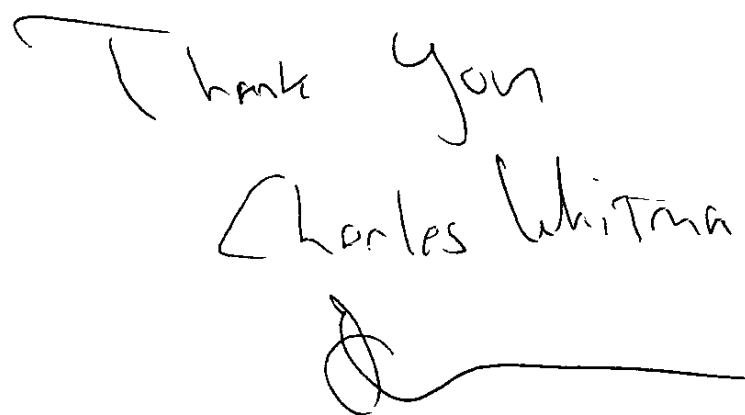 Thank You
Charles Whitma